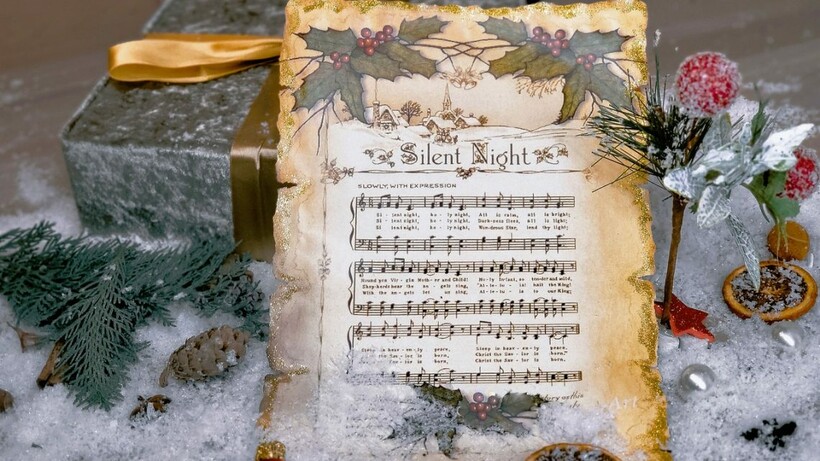 Silent Night
SLOWLY, WITH EXPRESSION
Si - lent night, ho - ly night, All is calm, all is bright;
Si - lent night, ho - ly night, Dark-ness flies, all is light;
Si - lent night, ho - ly night, Won-drous Star, lend thy light;
Round yon Vir - gin Moth - er and Child! Ho - ly In-fant, so ten-der and mild,
Shep-herds hear the an - gels sing, "Al - le - lu - ia! hail the King!
With the an - gels let us sing, Al - le - lu - ia to our King!
Sleep in heav - en - ly peace, Sleep in heav - en - ly peace.
the Sav - ior is born, Christ the Sav - ior is born."
the Sav - ior is born, Christ the Sav - ior is born.
Art